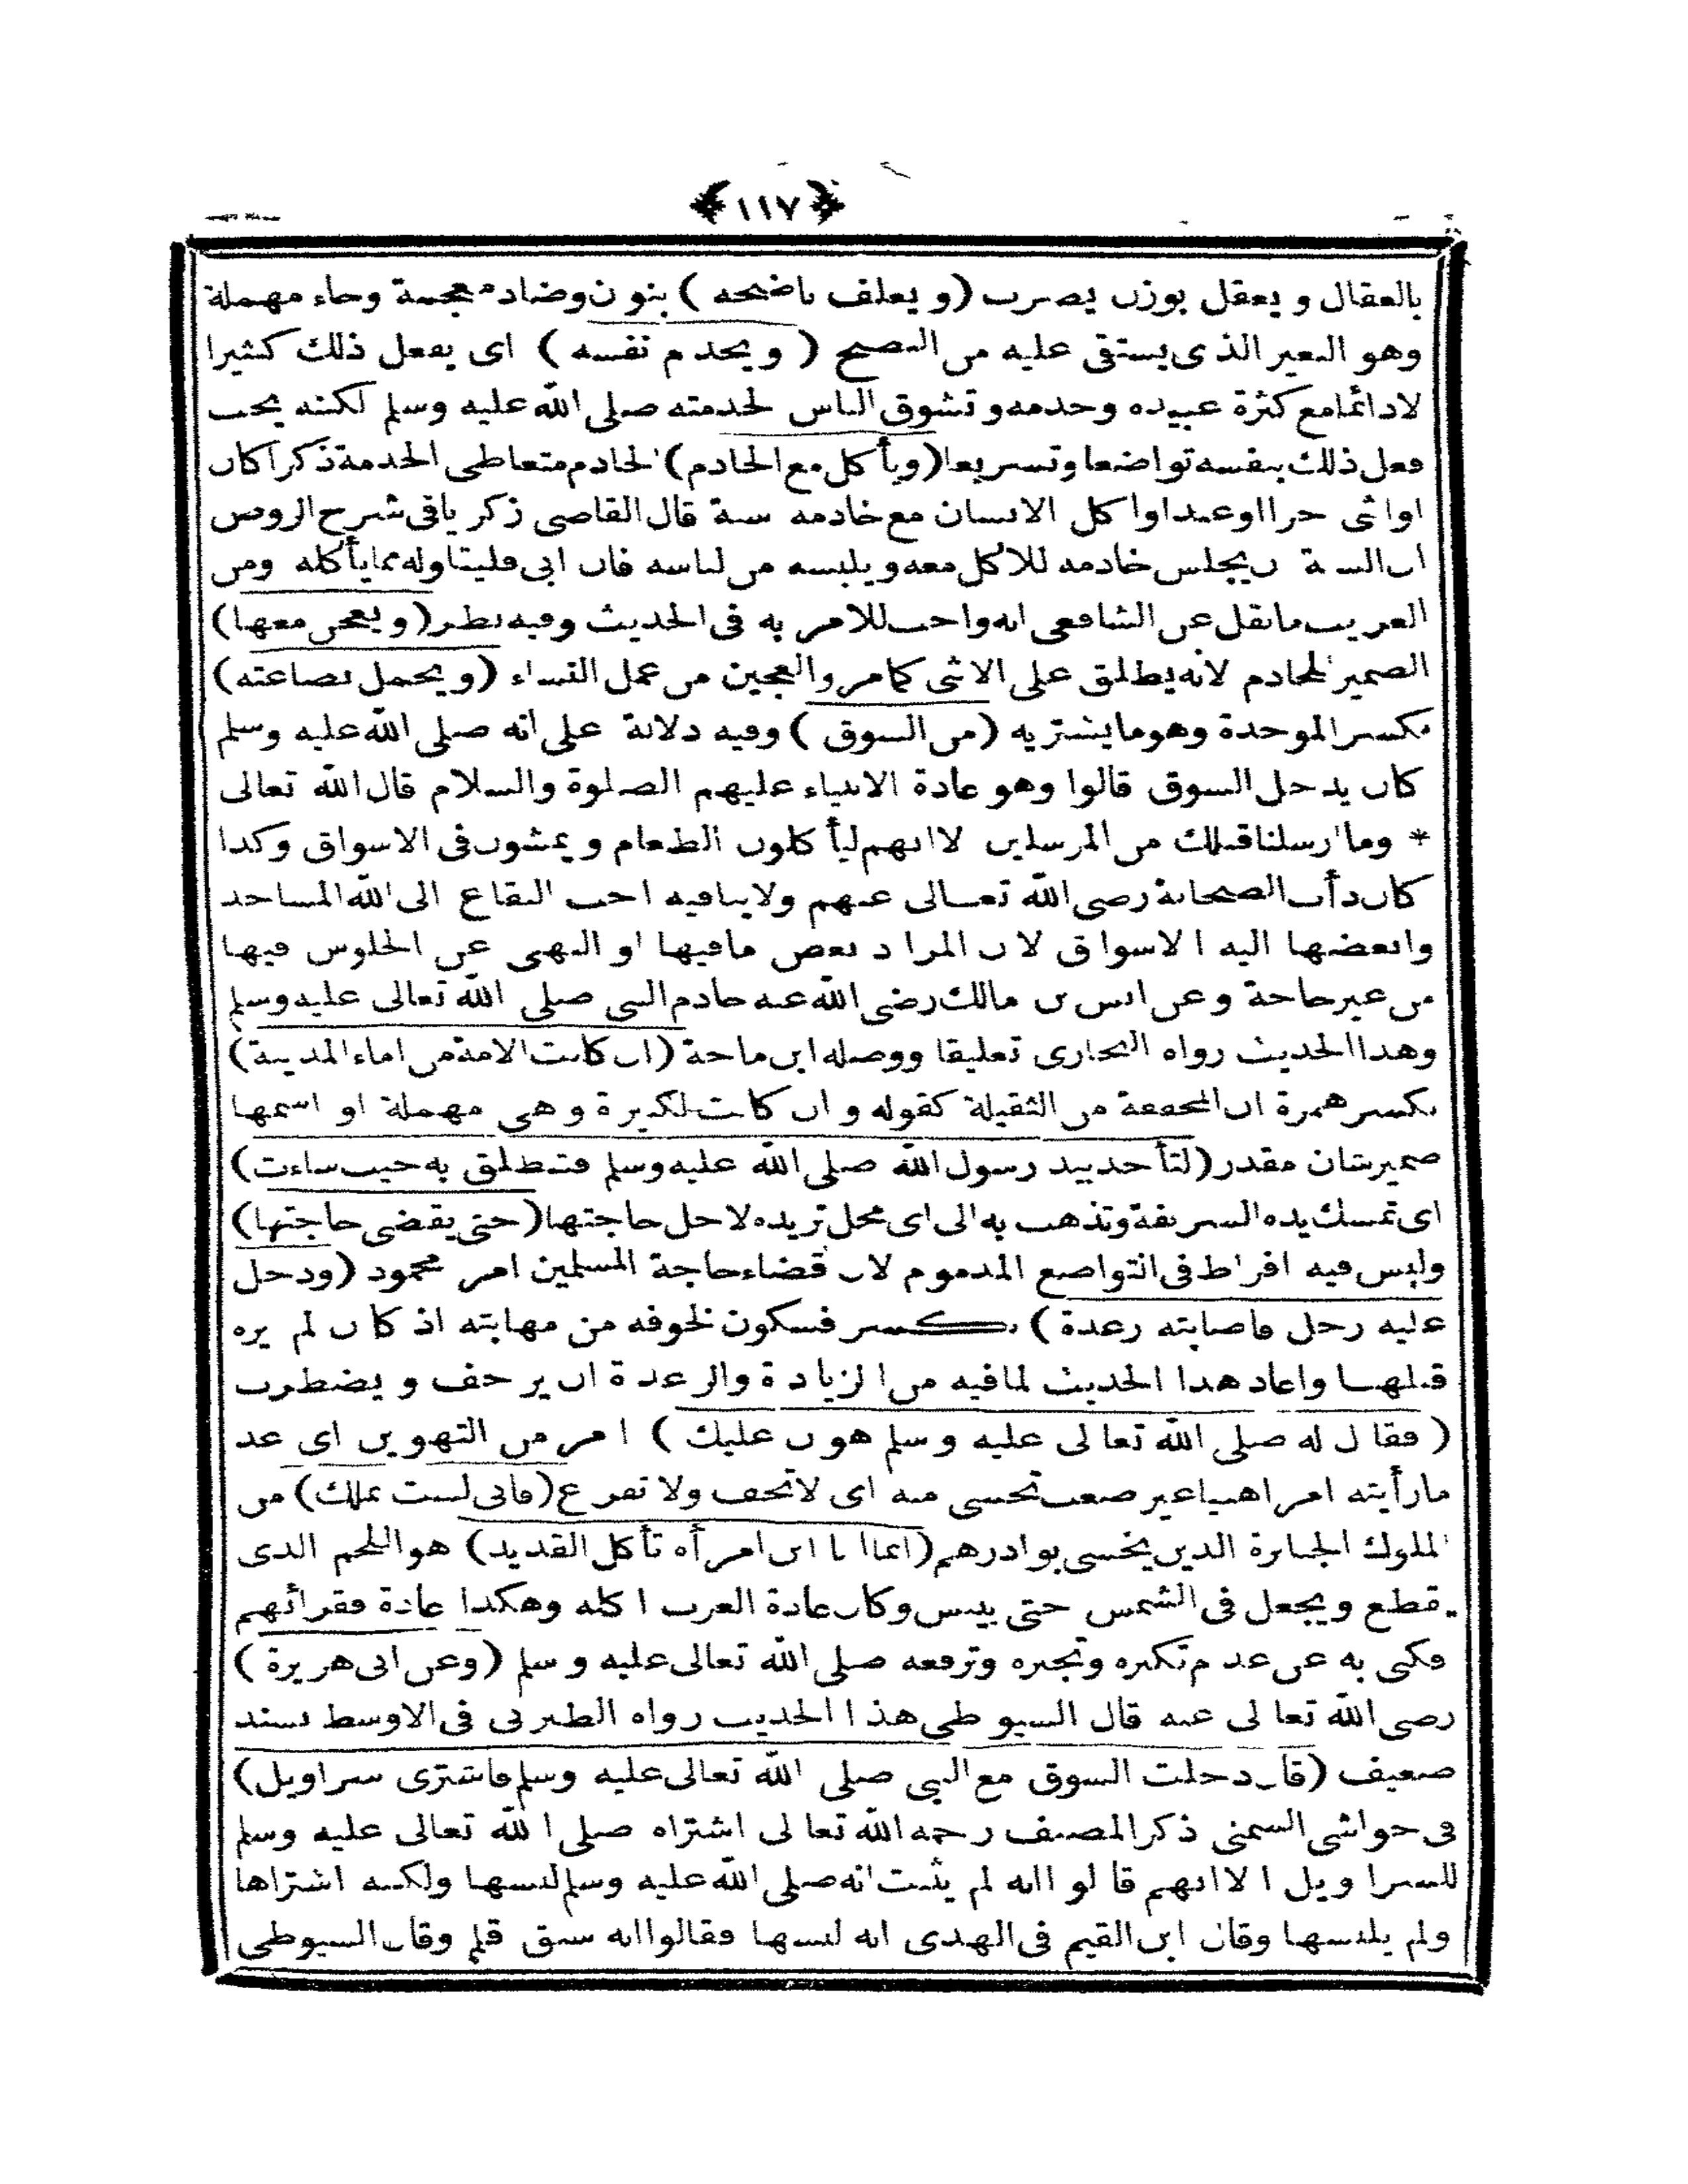 ﴿ ١١٧ ﴾
بالعقال و يعقل بوزن يضرب (و يعلف ناضحه) بنون وضاد معجمة وحاء مهملة
وهو البعير الذى يستقى عليه من النضح (و يخدم نفسه) اى يفعل ذلك كثيرا
لا دائما مع كثرة عبيده وخدمه و تشوق الناس لخدمته صلى الله عليه وسلم لكنه يحب
فعل ذلك بنفسه تواضعا وتشريعا (ويأكل مع الخادم) الخادم متعاطى الخدمة ذكرا كان
او انثى حرا او عبدا واكل الانسان مع خادمه سنة قال القاضى زكريا فى شرح الروض
ان السنة ان يجلس خادمه للاكل معه و يلبسه من لباسه فان ابى فليناوله مما يأكله ومن
الغريب ما نقل عن الشافعى انه واجب للامر به فى الحديث وفيه نظر (و يعجن معها)
الضمير للخادم لانه يطلق على الانثى كما مر والعجين من عمل النساء (و يحمل بضاعته)
بكسر الموحدة وهو ما يشتريه (من السوق) وفيه دلالة على انه صلى الله عليه وسلم
كان يدخل السوق قالوا وهو عادة الانبياء عليهم الصلوة والسلام قال الله تعالى
* وما ارسلنا قبلك من المرسلين لا انهم ليأكلون الطعام و يمشون فى الاسواق وكذا
كان دأب الصحابة رضى الله تعالى عنهم ولا ينافيه احب البقاع الى الله المساجد
وابغضها اليه الاسواق لان المراد بغض مافيها او النهى عن الجلوس فيها
من غير حاجة وعن انس بن مالك رضى الله عنه خادم النبى صلى الله تعالى عليه وسلم
وهذا الحديث رواه البخارى تعليقا ووصله ابن ماجة (ان كانت الامة من اماء المدينة)
بكسر همزة ان المخففة من الثقيلة كقوله و ان كانت لكبيرة و هى مهملة او اسمها
ضمير شان مقدر (لتأخذ بيد رسول الله صلى الله عليه وسلم فتنطلق به حيث شاءت)
اى تمسك يده الشريفة وتذهب به الى اى محل تريده لاجل حاجتها (حتى يقضى حاجتها)
وليس فيه افراط فى التواضع المذموم لان قضاء حاجة المسلمين امر محمود (ودخل
عليه رجل فاصابته رعدة) بكسر فسكون لخوفه من مهابته اذ كان لم يره
قبلها واعاد هذا الحديث لما فيه من الزيادة والرعدة ان يرجف و يضطرب
(فقال له صلى الله تعالى عليه وسلم هون عليك) امر من التهوين اى عد
ما رأيته امرا هينا غير صعب تخشى منه اى لا تخف ولا تفزع (فانى لست بملك) من
الملوك الجبابرة الذين يخشى بوادرهم (انما انا ابن امرأه تأكل القديد) هو اللحم الذى
يقطع و يجعل فى الشمس حتى ييبس وكان عادة العرب اكله وهكذا عادة فقرائهم
فكنى به عن عدم تكبره وتجبره وترفعه صلى الله تعالى عليه وسلم (وعن ابى هريرة)
رضى الله تعالى عنه قال السيوطى هذا الحديث رواه الطبرانى فى الاوسط بسند
ضعيف (قال دخلت السوق مع النبى صلى الله تعالى عليه وسلم فاشترى سراويل)
فى حواشى الشمنى ذكر المصنف رحمه الله تعالى اشتراه صلى الله تعالى عليه وسلم
للسراويل الا انهم قالوا انه لم يثبت انه صلى الله عليه وسلم لبسها ولكنه اشتراها
ولم يلبسها وقال ابن القيم فى الهدى انه لبسها فقالوا انه سبق قلم وقال السيوطى